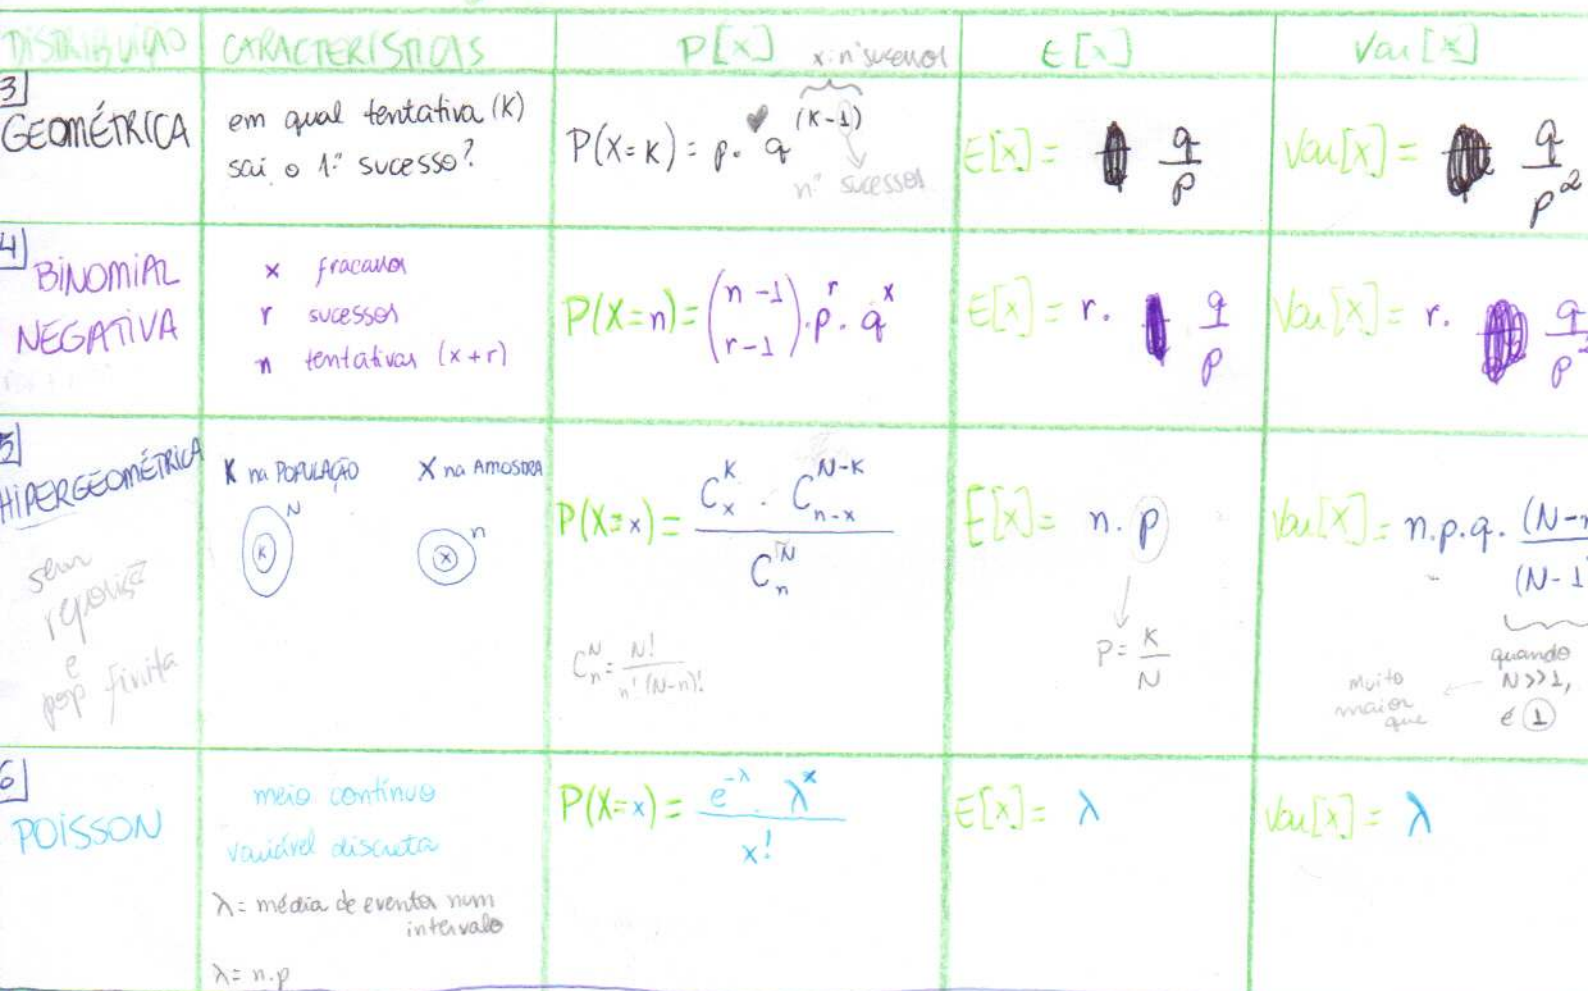 DISTRIBUIÇÃO CARACTERÍSTICAS P[x] E[x] Var[x]
x: nº sucessos
3
GEOMÉTRICA
em qual tentativa (K)
sai o 1º sucesso?
P(X=K) = p. q^(K-1)
nº sucessos
E[x] = q/p
Var[x] = q/p²
4
BINOMIAL
NEGATIVA
x fracassos
r sucessos
n tentativas (x+r)
P(X=n) = (n-1 r-1) . p^r . q^x
E[x] = r. q/p
Var[x] = r. q/p²
5
HIPERGEOMÉTRICA
sem
e
pop finita
K na POPULAÇÃO X na AMOSTRA
N
K
n
x
P(X=x) = C_x^K . C_{n-x}^{N-K} / C_n^N
C_n^N = N! / n! (N-n)!
E[x] = n. p
P = K/N
Var[x] = n.p.q. (N-n / (N-1
quando
N>>1,
é 1
muito
maior
que
6
POISSON
meio contínuo
variável discreta
λ = média de eventos num
intervalo
λ = n.p
P(X=x) = e^-λ . λ^x / x!
E[x] = λ
Var[x] = λ